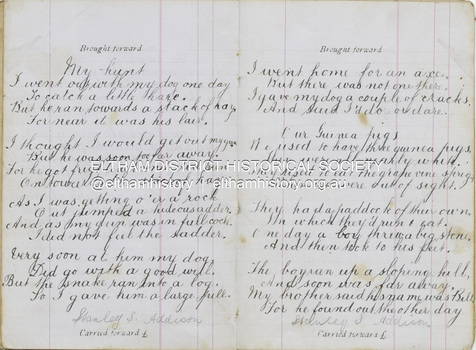 Brought forward
My hunt
I went out with my dog one day
To catch a little hare.
But he ran towards a stack of hay
For near it was his lair.
I thought I would get out my gun
But he was soon far away.
For he got
On towards the stack of hay
As I was getting o'er a rock
Out jumped a hideous adder.
And as my gun was in full cock
I did not feel the sadder.
Very soon at him my dog
Did go with a good will.
But the snake ran into a log
So I gave him a large pill.
Stanley S. Addison
Carried forward £
Brought forward
I went home for an axe
But there was not one there.
I gave my dog a couple of cracks
And said I'd do or dare.
Our Guinea pigs
We used to have three guinea pigs
Two
were out of sight.
They had a paddock of their own
In which they'd run & eat.
One day a boy threw a big stone
And then took to his feet.
The boy ran up a sloping hill
And soon was far away.
My brother said his name was Bill
For he found out the other day
Stanley S. Addison
Carried forward £
ELTHAM DISTRICT HISTORICAL SOCIETY
@elthamhistory | elthamhistory.org.au